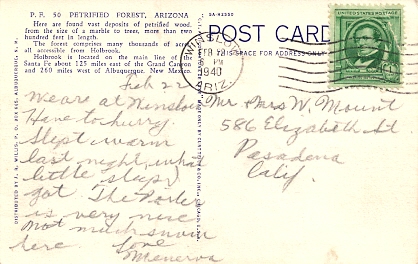 P. F. 50 PETRIFIED FOREST, ARIZONA
Here are found vast deposits of petrified wood,
from the size of a marble to trees, more than two
hundred feet in length.
The forest comprises many thousands of acres
all accessible from Holbrook.
Holbrook is located on the main line of the
Santa Fe about 125 miles east of the Grand Canyon
and 260 miles west of Albuquerque, New Mexico.
Feb 22
We are at Winslow
Have to hurry.
Slept warm
last night, what
little sleep I
got. The Porter
is very nice
Not much snow
here. Love
Menerva
POST CARD
THIS SPACE FOR ADDRESS ONLY
WINSLOW
FEB
PM
1940
ARIZ.
Mr Mrs W. Mount
586 Elizabeth St
Pasadena
Calif.